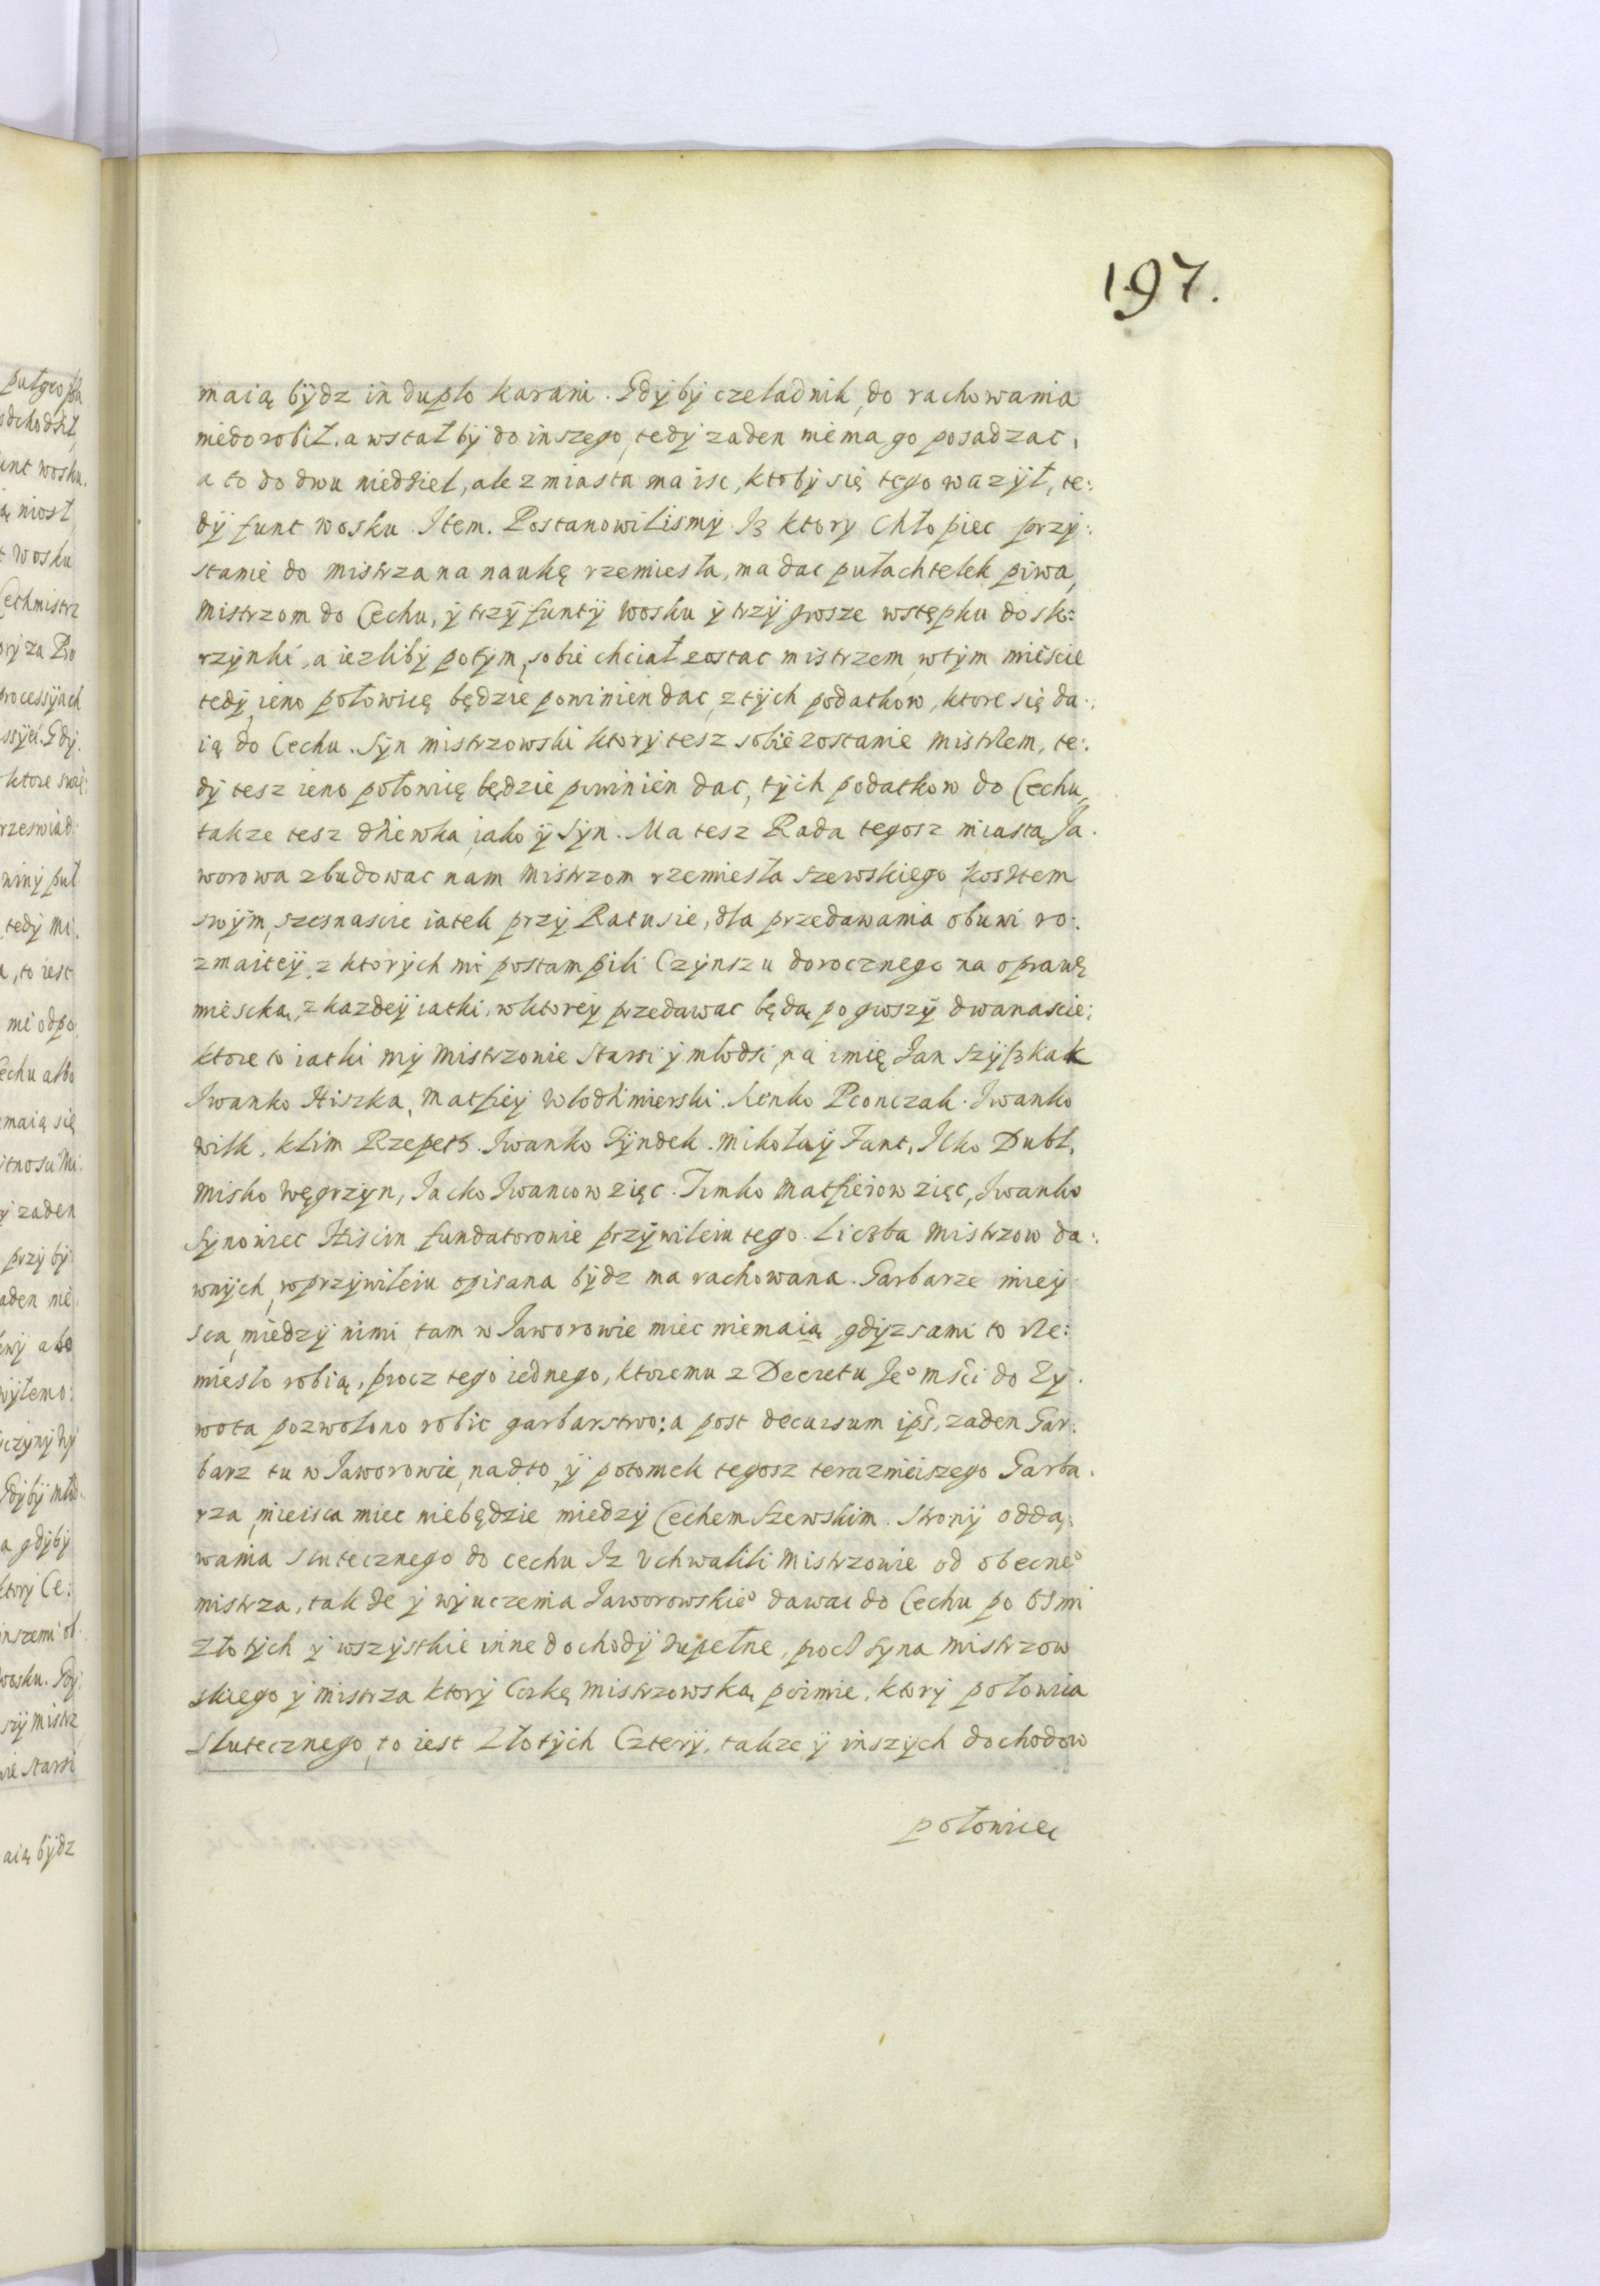 197.
maią bydz in duplo karani. Gdyby czeladnik, do rachowania
niedorobił, a wstałby do inszego, tedy zaden niema go posadzac,
a to do dwu niedziel, ale z miasta ma isc, ktoby się tego wazył, te:
dy funt wosku. Item. Postanowilismy Iz ktory Chłopiec przy:
stanie do mistrza na naukę rzemiesła, ma dac pułachtelek piwa,
Mistrzom do Cechu, y trzy funty wosku y trzy grosze wstępku do sk:
rzynki, a iezliby potym, sobie chciał zostac mistrzem, wtym miescie
tedy, ieno połowicę będzie powinien dac, z tych podatkow, ktore się da:
ią do Cechu. Syn mistrzowski ktory tesz sobie zostanie mistrzem, te:
dy tesz ieno połowicę będzie powinien dac, tych podatkow do Cechu,
takze tesz dziewka iako y Syn. Ma tesz Rada tegosz miasta Ja.
worowa zbudowac nam Mistrzom rzemiesła szewskiego kosztem
swym, szesnascie iatek przy Ratusie, dla przedawania obuwi ro:
zmaitey, z ktorych mi postampili Czynszu dorocznego na oprawę
miescką, z kazdey iatki, w ktorey przedawac będą po groszy dwanascie;
ktore to iatki my Mistrzonie starsi y młodsi, na imię Jan Szyszkak
Iwanko Hiszka, Matfiey Włodzimierski. Senko Pconczak. Iwanko
wilk, klim Rzepecz. Iwanko Tyndek. Mikołay Fant, Ilko Dubl,
Misko Węgrzyn, Jacko Iwancow zięc. Timko Matfieiow zięc, Iwanko
Synowiec Hiscin fundatorowie przywileiu tego. Liczba Mistrzow da:
wnych, w przywileiu opisana bydz ma rachowana. Garbarze miey
sca, miedzy nimi, tam w Jaworowie miec niemaią, gdyz sami to rze:
miesło robią, procz tego iednego, ktoremu z Decretu Je° mści do Zy.
wota pozwolono robic garbarstwo: a post decursum ips, zaden Gar.
barz tu w Jaworowie, nadto, y potomek tegosz terazmieiszego Garba.
rza, mieisca miec niebędzie miedzy Cechem Szewskim. Strony odda:
wania slutecznego do cechu Iz Vchwalili Mistrzowie od obecne°
mistrza, takze y wyuczenia Jaworowskie° dawac do Cechu po osmi
Złotych y wszystkie inne dochody zupełne, procz syna Mistrzow
skiego y Mistrza ktory Corkę Mistrzowską poimie, ktory połowica
slutecznego, to iest Złotych Cztery, takze y inszych dochodow
połowicę